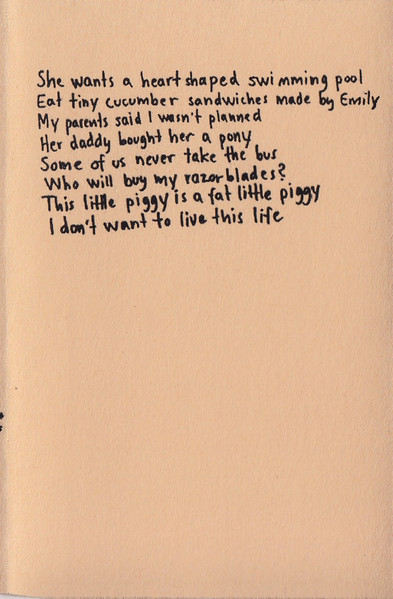 She wants a heart shaped swimming pool
Eat tiny cucumber sandwiches made by Emily
My parents said I wasn't planned
Her daddy bought her a pony
Some of us never take the bus
Who will buy my razorblades?
This little piggy is a fat little piggy
I don't want to live this life